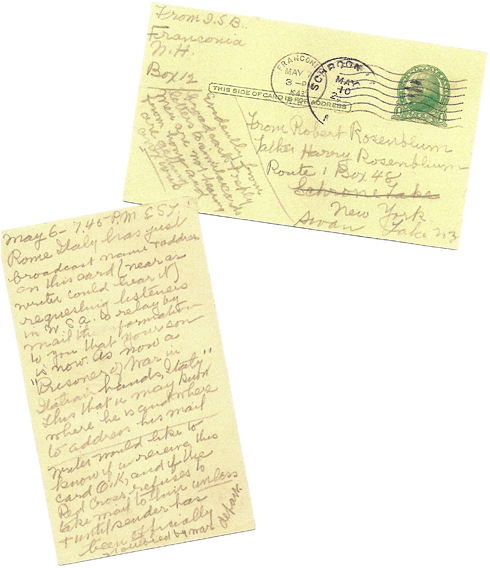 From I.S.B.
Franconia
N.H.
Box 12
FRANCONIA
MAY
3-P
SCHROON
MAY
10
THIS SIDE OF CARD IS FOR ADDRESS
From Robert Rosenblum
Father Harry Rosenblum
Route 1 Box 48
Schrone Lake
New York
Swan Lake N.Y.
May 6 - 7,45 P.M E.S.T,
Rome Italy has just
broadcast name & address
on this card (near as
writer could hear it)
requesting listeners
in U.S.A. to relay by
mail the information
to you that your son
is now. As now a
"Prisoner of War in
Italian hands, Italy"
This that u may know
where he is and where
to address his mail
writer would like to
know if u receive this
card O.K. and if the
Red Cross refuses to
take mail to him unless
& until sender has
been officially
notified by war
depart